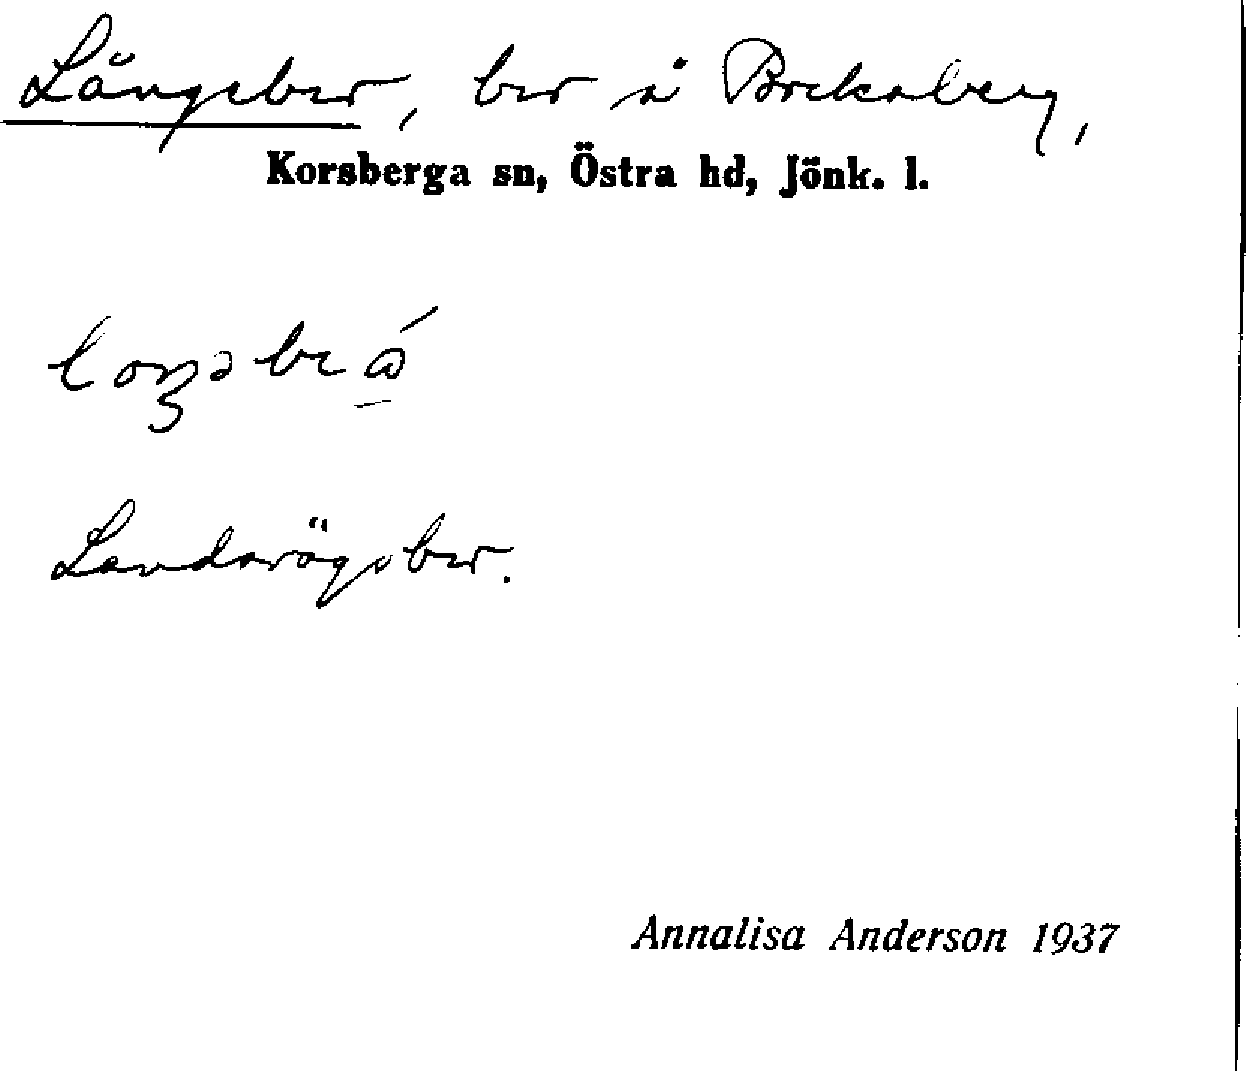 Långebro, bro å Brcksberg,
Korsberga sn, Östra hd, Jönk. l.
Landsvägsbro.
Annalisa Anderson 1937